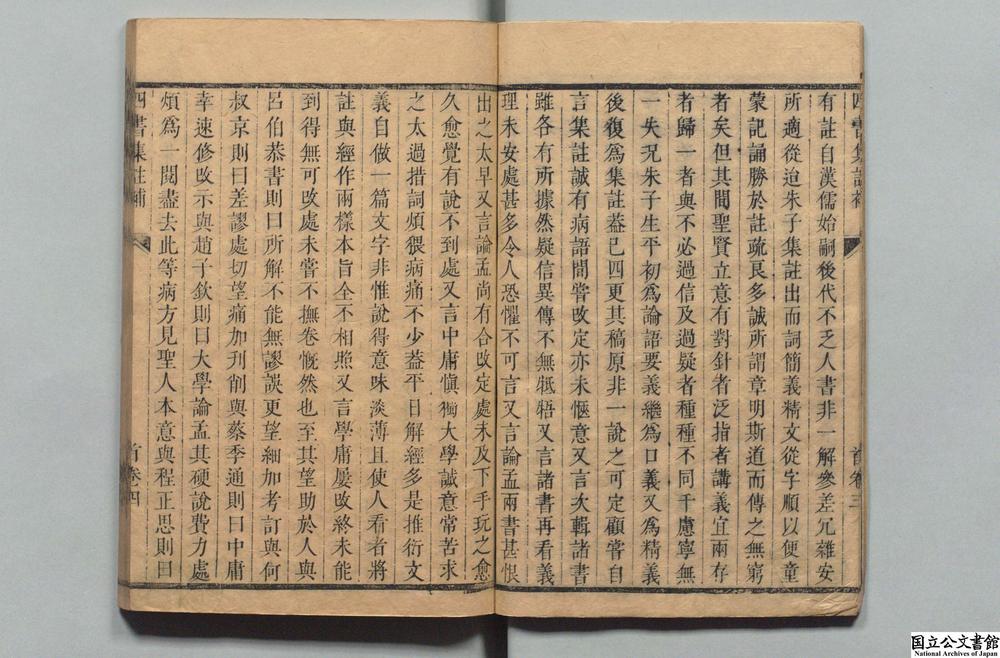 有註自漢儒始嗣後代不乏人書非一解參差冗雜安
所適從迨朱子集註出而詞簡義精文從字順以便童
蒙記誦勝於註疏良多誠所謂章明斯道而傳之無窮
者矣但其間聖賢立意有對針者泛指者講義宜兩存
者歸一者與不必過信及過疑者種種不同千慮寧無
一失況朱子生平初為論語要義繼為口義又為精義
後復為集註葢已四更其稿原非一說之可定顧嘗自
言集註誠有病語間嘗改定亦未愜意又言次輯諸書
雖各有所據然疑信異傳不無牴牾又言諸書再看義
理未安處甚多令人恐懼不可言又言論孟兩書甚恨
首卷三
出之太早又言論孟尚有合改定處未及下手玩之愈
久愈覺有說不到處又言中庸慎獨大學誠意常苦求
之太過措詞煩猥病痛不少葢平日解經多是推衍文
義自做一篇文字非惟說得意味淡薄且使人看者將
註與經作兩樣本旨全不相照又言學庸屢改終未能
到得無可改處未嘗不撫卷慨然也至其望助於人與
呂伯恭書則曰所解不能無謬誤更望細加考訂與何
叔京則曰差謬處切望痛加刋削與蔡季通則曰中庸
幸速修改示與趙子欽則曰大學論孟其硬說費力處
煩為一閱盡去此等病方見聖人本意與程正思則曰
四書集註補
首卷四
国立公文書館
National Archives of Japan